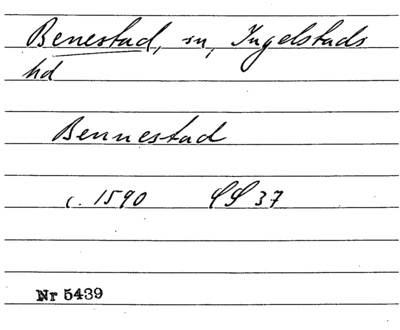 Benestad, sn, Ingelstads
hd
Bennestad
c. 1590 SS 37
Nr 5439